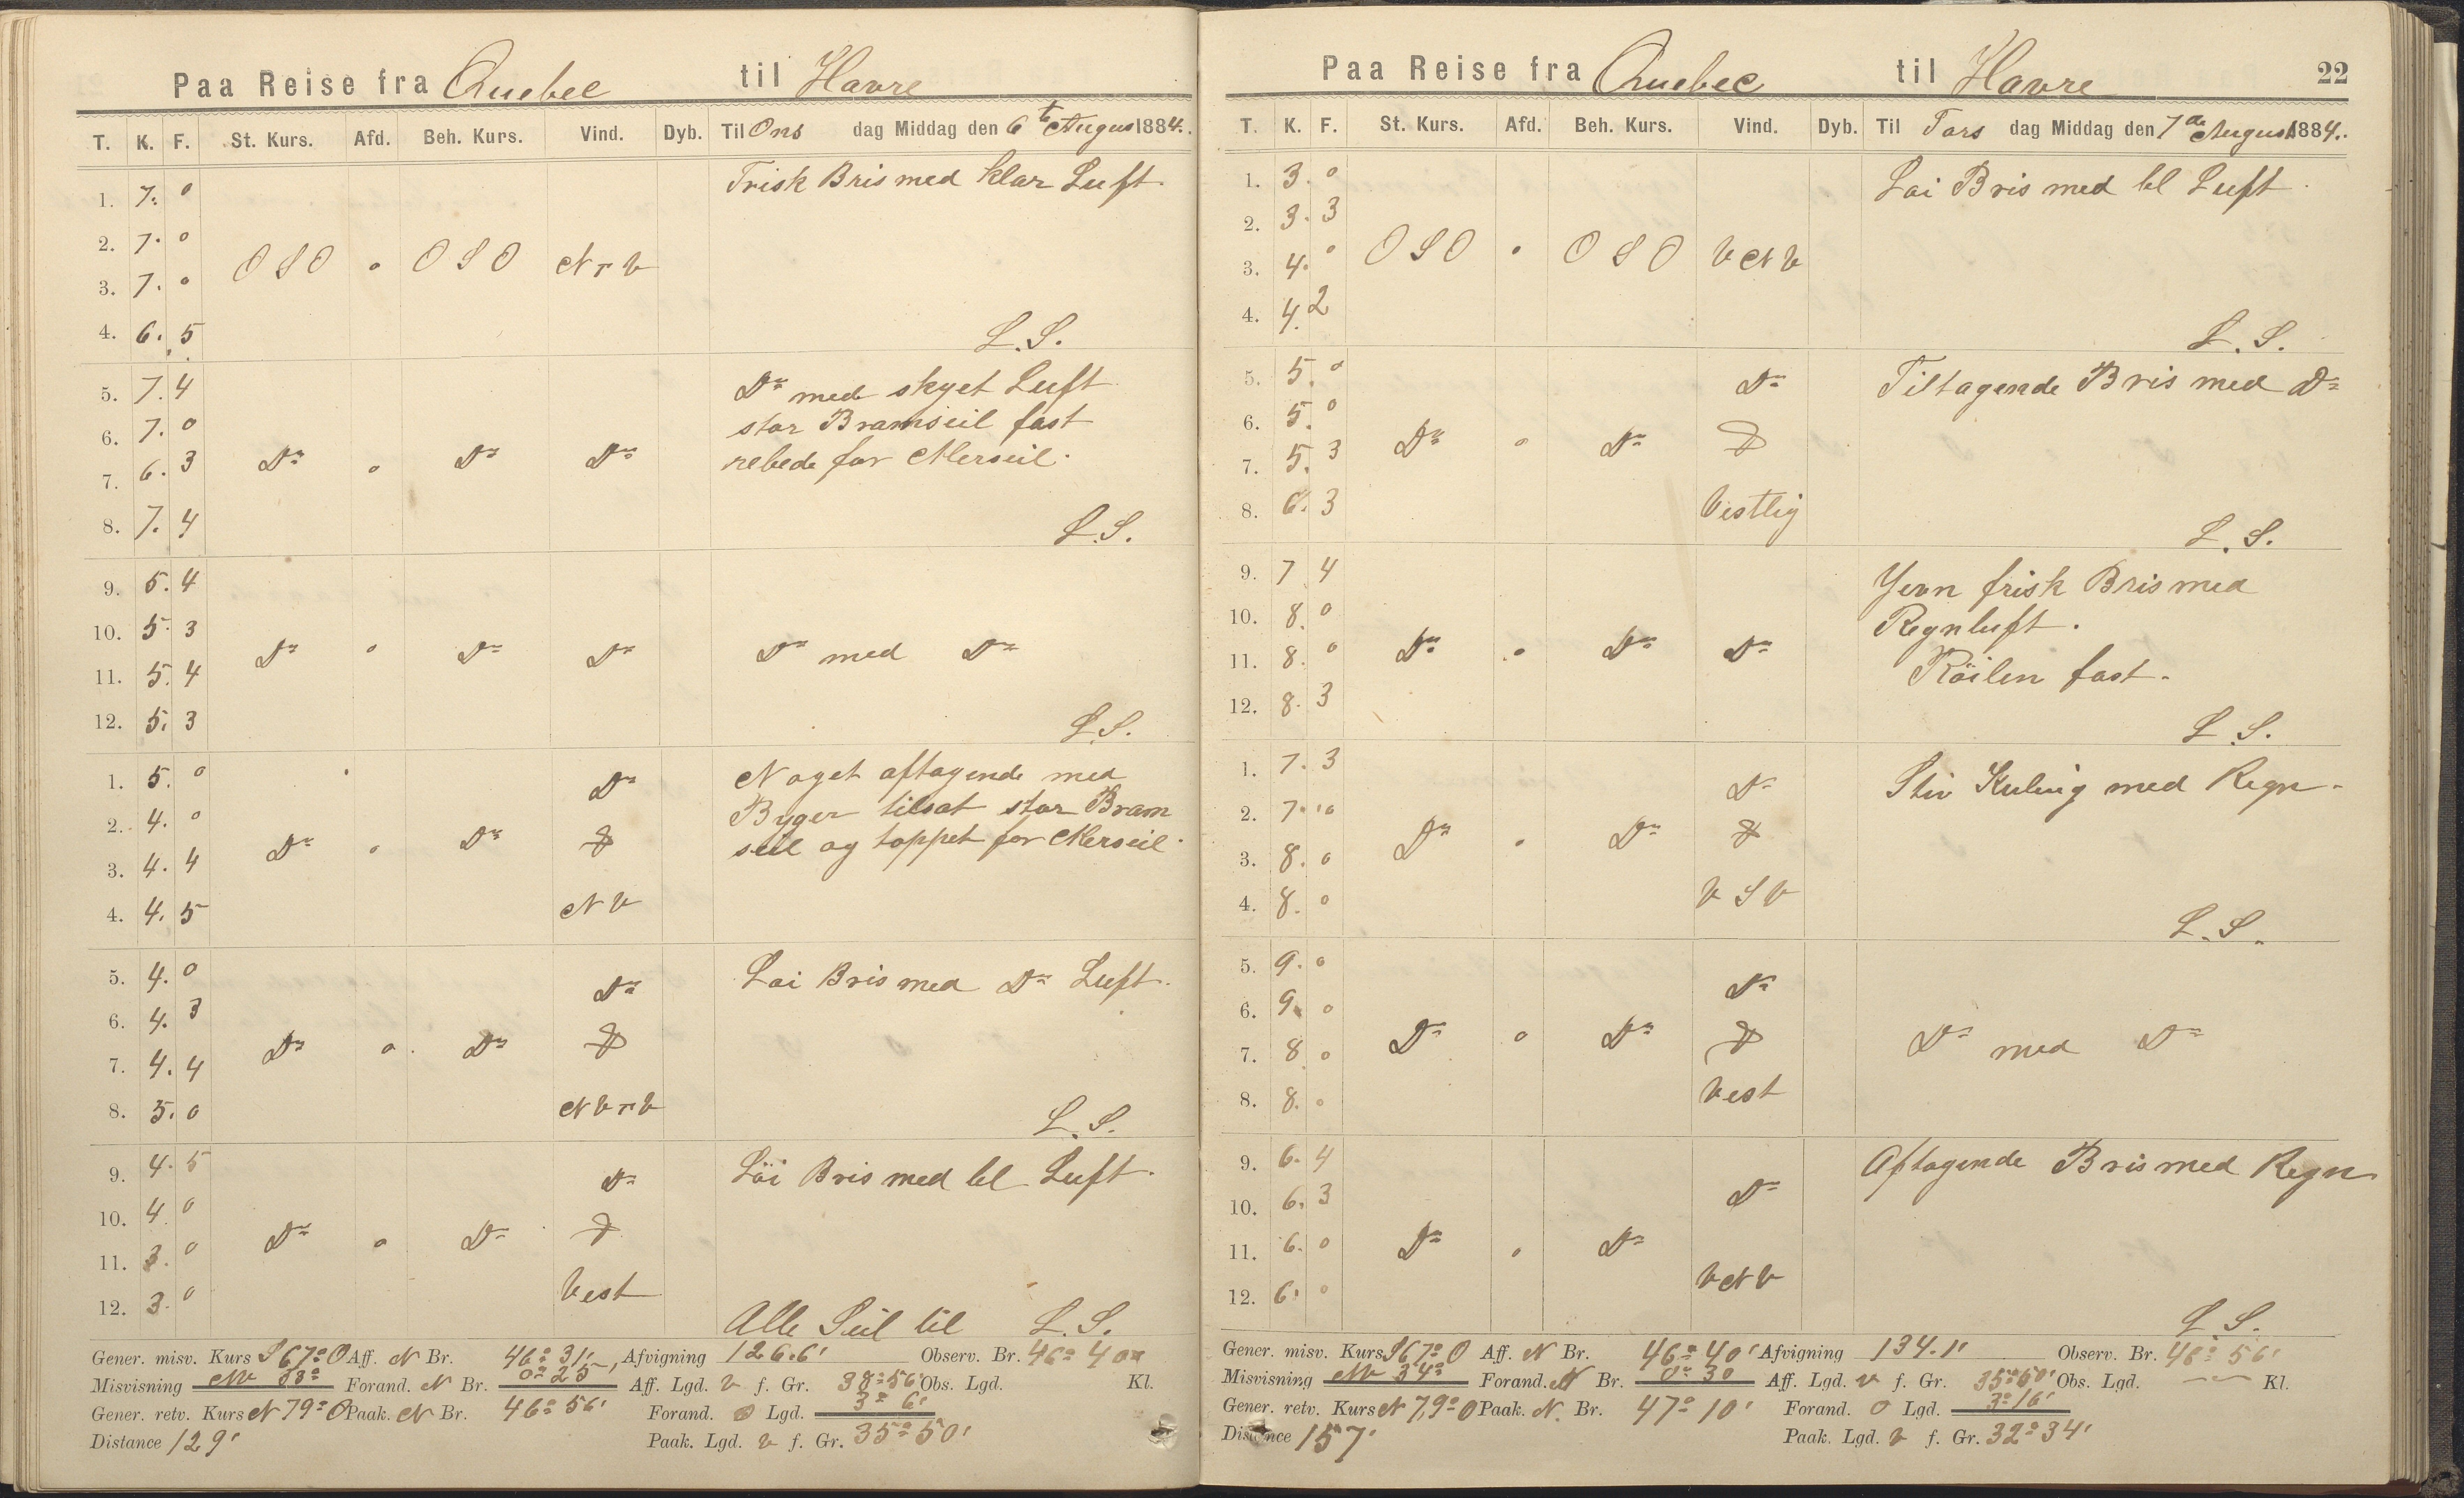 Paa Reise fra Quebec til Havre
T. K. F. St. Kurs. Afd. Beh. Kurs. Vind. Dyb. Til Ons dag Middag den 6te August 1884.
1. 7. 0 Frisk Bris med klar Luft.
2. 7. 0
3. 7. 0 OSO 0 OSO N r V
4. 6. 5 L.S.
5. 7. 4 Do med skyet Luft
6. 7. 0 stor Bramseil fast
7. 6. 3 Do 0 Do Do rebede for Merseil.
8. 7. 4 L.S.
9. 5. 4
10. 5. 3 Do 0 Do Do Do med Do
11. 5. 4
12. 5. 3 L.S.
1. 5. 0 Do Noget aftagende med
2. 4. 0 Byger tilsat stor Bram
3. 4. 4 Do 0 Do seil og toppet for Merseil.
4. 4. 5 NV
5. 4. 0 Do Lai Bris med Do Luft.
6. 4. 3
7. 4. 4 Do 0 Do
8. 5. 0 NV r V L.S.
9. 4. 5 Do Löi Bris med bl Luft.
10. 4. 0
11. 3. 0 Do 0 Do
12. 3. 0 Vest Alle Seil til L.S.
Gener. misv. Kurs S 67° O Aff. N Br. 46° 31' Afvigning 126.6' Observ. Br. 46° 40
Misvisning NV Forand. N Br. 0° 25' Aff. Lgd. V f. Gr. 38° 56' Obs. Lgd. Kl.
Gener. retv. Kurs N 79° O Paak. N Br. 46° 56' Forand. O Lgd. 3° 6'
Distance 129' Paak. Lgd. V f. Gr. 35° 50'
Paa Reise fra Quebec til Havre 22
T. K. F. St. Kurs. Afd. Beh. Kurs. Vind. Dyb. Til Tors dag Middag den 7de August 1884.
1. 3. 0 Lai Bris med bl Luft.
2. 3. 3
3. 4. 0 OSO 0 OSO VNV
4. 4. 2 L.S.
5. 5. 0 Do Tiltagende Bris med Do
6. 5. 0
7. 5. 3 Do 0 Do
8. 6. 3 Vestlig L.S.
9. 7 4 Jevn frisk Bris med
10. 8. 0 Regnluft.
11. 8. 0 Do 0 Do Do Röilen fast.
12. 8. 3 L.S.
1. 7. 3 Do Stiv Kuling med Regn.
2. 7. 0
3. 8. 0 Do 0 Do
4. 8. 0 VSV L.S.
5. 9. 0 Do
6. 9. 0
7. 8. 0 Do 0 Do Do med Do
8. 8. 0 Vest
9. 6. 4 Aftagende Bris med Regn
10. 6. 3 Do
11. 6. 0 Do 0 Do
12. 6. 0 VNV L.S.
Gener. misv. Kurs S 67° O Aff. N Br. 46° 40' Afvigning 134.1' Observ. Br. 46° 56'
Misvisning NV 34° Forand. N Br. 0° 30 Aff. Lgd. V f. Gr. 35° 50' Obs. Lgd. Kl.
Gener. retv. Kurs N 79° O Paak. N. Br. 47° 10' Forand. O Lgd. 3° 16'
Distance 157' Paak. Lgd. V f. Gr. 32° 34'